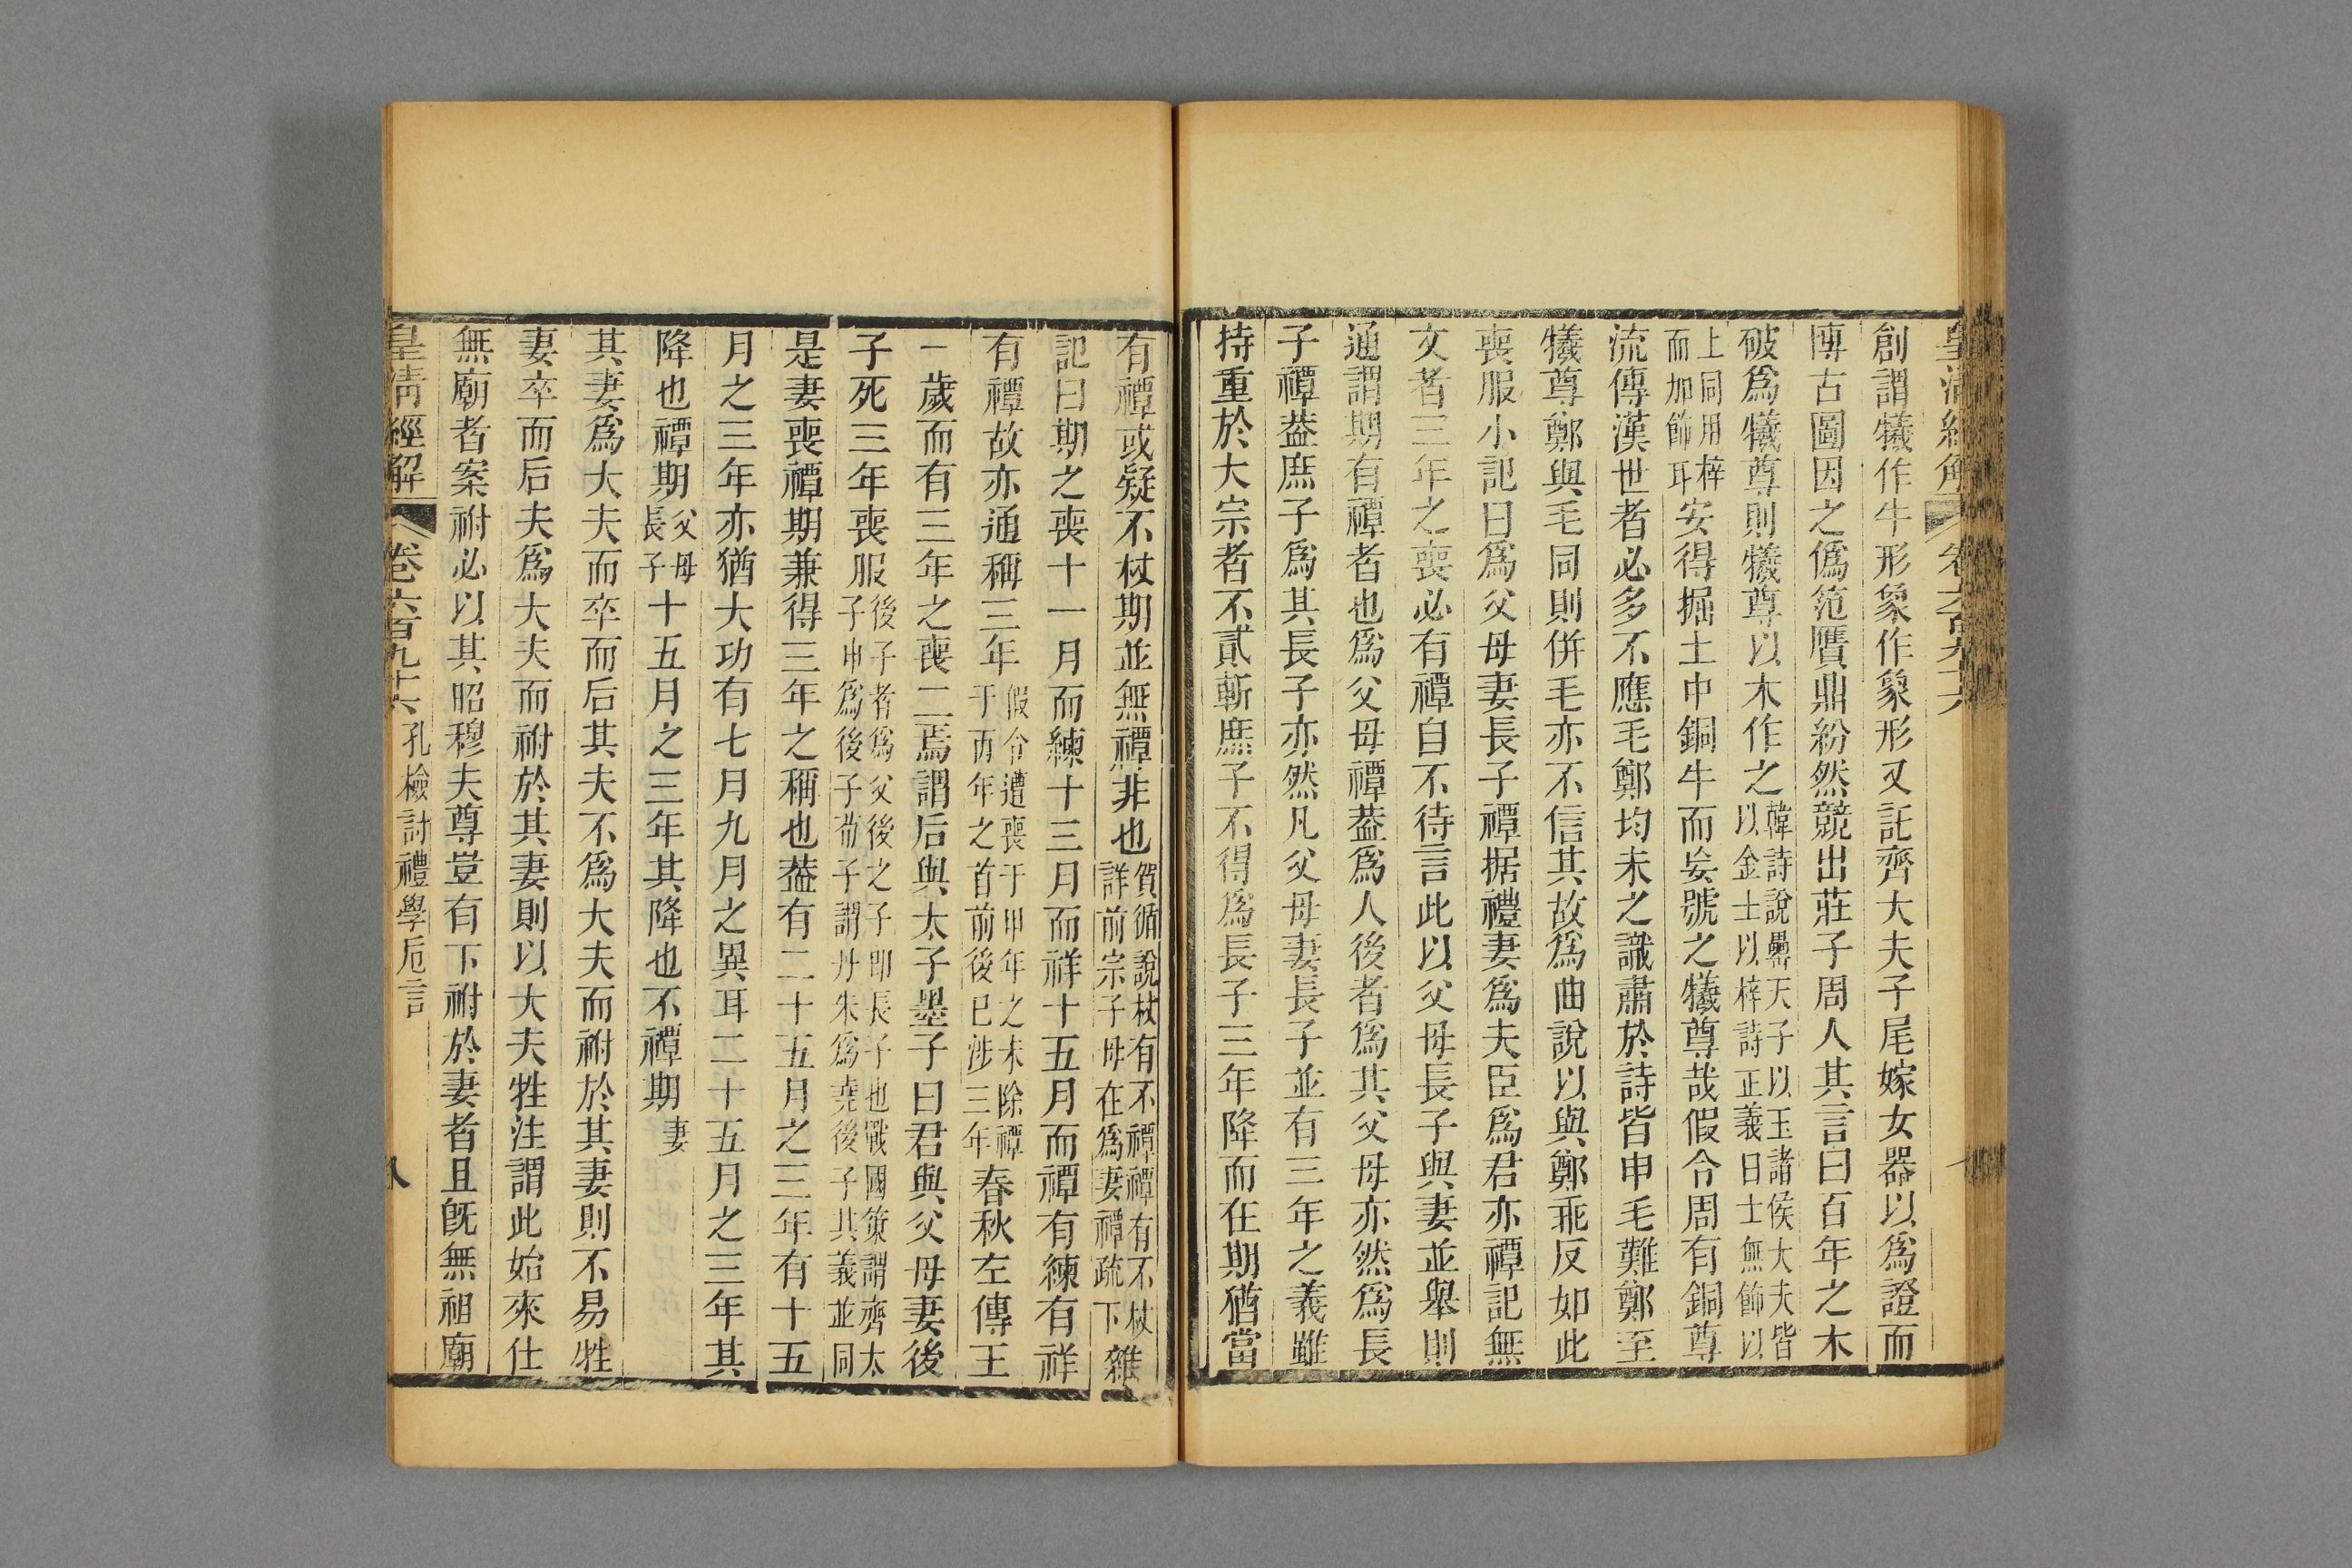 皇清經解 卷六百九十六
創謂犧作牛形象作象形又託齊大夫子尾嫁女器以為證而
博古圖因之偽笵贋鼎紛然競出莊子周人其言曰百年之木
破為犧尊則犧尊以木作之韓詩說罍天子以玉諸侯大夫皆以金士以梓詩正義曰士無飾以
上同用梓而加飾耳安得掘土中銅牛而妄號之犧尊哉假令周有銅尊
流傳漢世者必多不應毛鄭均未之識肅於詩皆申毛難鄭至
犧尊鄭與毛同則併毛亦不信其故為曲說以與鄭乖反如此
喪服小記曰為父母妻長子禫据禮妻為夫臣為君亦禫記無
文者三年之喪必有禫自不待言此以父母長子與妻並舉則
通謂期有禫者也為父母禫葢為人後者為其父母亦然為長
子禫葢庶子為其長子亦然凡父母妻長子並有三年之義雖
持重於大宗者不貳斬庶子不得為長子三年降而在期猶當
有禫或疑不杖期並無禫非也賀循說杖有不禫禫有不杖詳前宗子母在為妻禫疏下雜
記曰期之喪十一月而練十三月而祥十五月而禫有練有祥
有禫故亦通稱三年假令遭喪于甲年之末除禫于丙年之首前後已涉三年春秋左傳王
一歲而有三年之喪二焉謂后與太子墨子曰君與父母妻後
子死三年喪服後子者為父後之子即長子也戰國策謂齊太子申為後子荀子謂丹朱為堯後子其義並同
是妻喪禫期兼得三年之稱也葢有二十五月之三年有十五
月之三年亦猶大功有七月九月之異耳二十五月之三年其
降也禫期父母長子十五月之三年其降也不禫期妻
其妻為大夫而卒而后其夫不為大夫而祔於其妻則不易牲
妻卒而后夫為大夫而祔於其妻則以大夫牲注謂此始來仕
無廟者案祔必以其昭穆夫尊豈有下祔於妻者且旣無祖廟
皇清經解 卷六百九十六 孔檢討禮學卮言 八